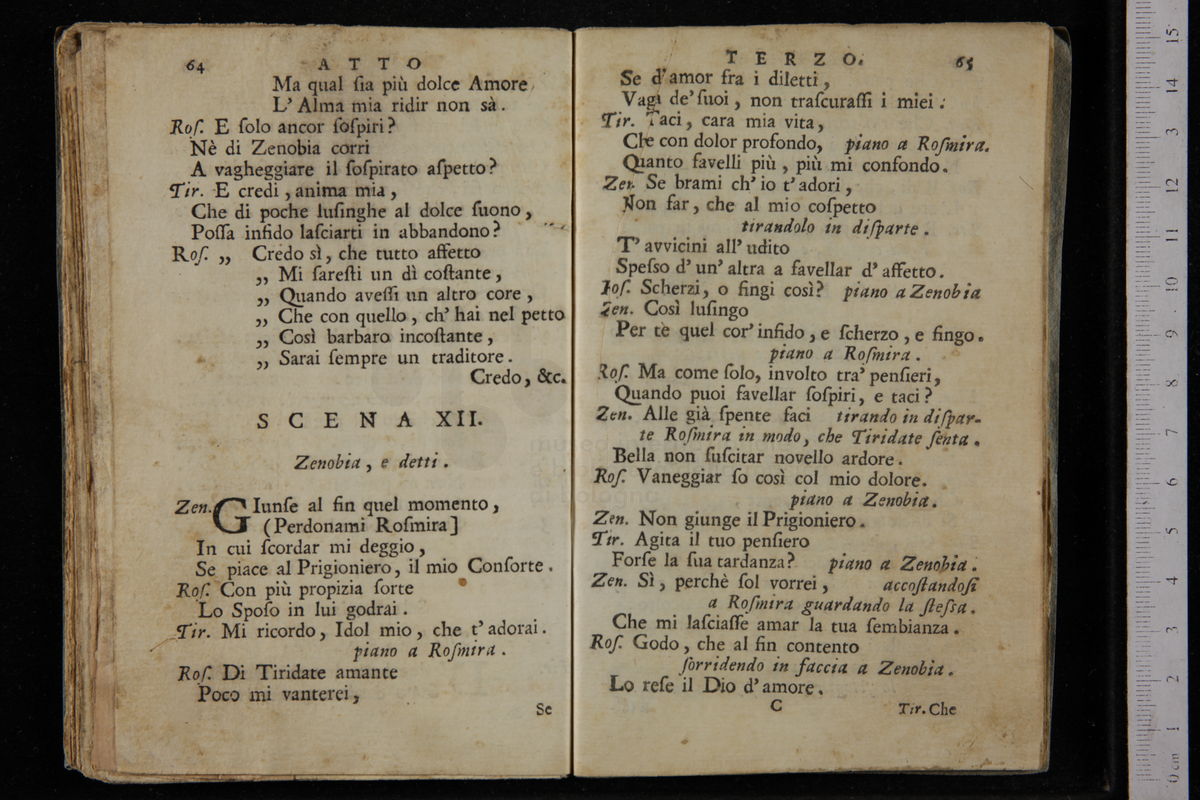 64 ATTO
Ma qual ſia più dolce Amore
L' Alma mia ridir non sà.
Roſ. E ſolo ancor ſoſpiri?
Nè di Zenobia corri
A vagheggiare il ſoſpirato aſpetto?
Tir. E credi, anima mia,
Che di poche luſinghe al dolce ſuono,
Poſſa infido laſciarti in abbandono?
Roſ. „ Credo sì, che tutto affetto
„ Mi ſareſti un dì coſtante,
„ Quando aveſſi un altro core,
„ Che con quello, ch' hai nel petto
„ Così barbaro incoſtante,
„ Sarai ſempre un traditore.
Credo, &c.
SCENA XII.
Zenobia, e detti.
Zen. GIunſe al fin quel momento,
(Perdonami Roſmira]
In cui ſcordar mi deggio,
Se piace al Prigioniero, il mio Conſorte.
Roſ. Con più propizia ſorte
Lo Spoſo in lui godrai.
Tir. Mi ricordo, Idol mio, che t' adorai.
piano a Roſmira.
Roſ. Di Tiridate amante
Poco mi vanterei,
Se
TERZO. 65
Se d'amor fra i diletti,
Vagi de' ſuoi, non traſcuraſſi i miei.
Tir. Taci, cara mia vita,
Che con dolor profondo, piano a Roſmira.
Quanto favelli più, più mi confondo.
Zen. Se brami ch' io t' adori,
Non far, che al mio coſpetto
tirandolo in diſparte.
T' avvicini all' udito
Speſso d' un' altra a favellar d' affetto.
Roſ. Scherzi, o fingi così? piano a Zenobia
Zen. Così luſingo
Per tè quel cor' infido, e ſcherzo, e fingo.
piano a Roſmira.
Roſ. Ma come ſolo, involto tra' penſieri,
Quando puoi favellar ſoſpiri, e taci?
Zen. Alle già ſpente faci tirando in diſpar-
te Roſmira in modo, che Tiridate ſenta.
Bella non ſuſcitar novello ardore.
Roſ. Vaneggiar ſo così col mio dolore.
piano a Zenobia.
Zen. Non giunge il Prigioniero.
Tir. Agita il tuo penſiero
Forſe la ſua tardanza? piano a Zenobia.
Zen. Sì, perchè ſol vorrei, accoſtandoſi
a Roſmira guardando la ſteſsa.
Che mi laſciaſſe amar la tua ſembianza.
Roſ. Godo, che al fin contento
ſorridendo in faccia a Zenobia.
Lo reſe il Dio d' amore.
C Tir. Che